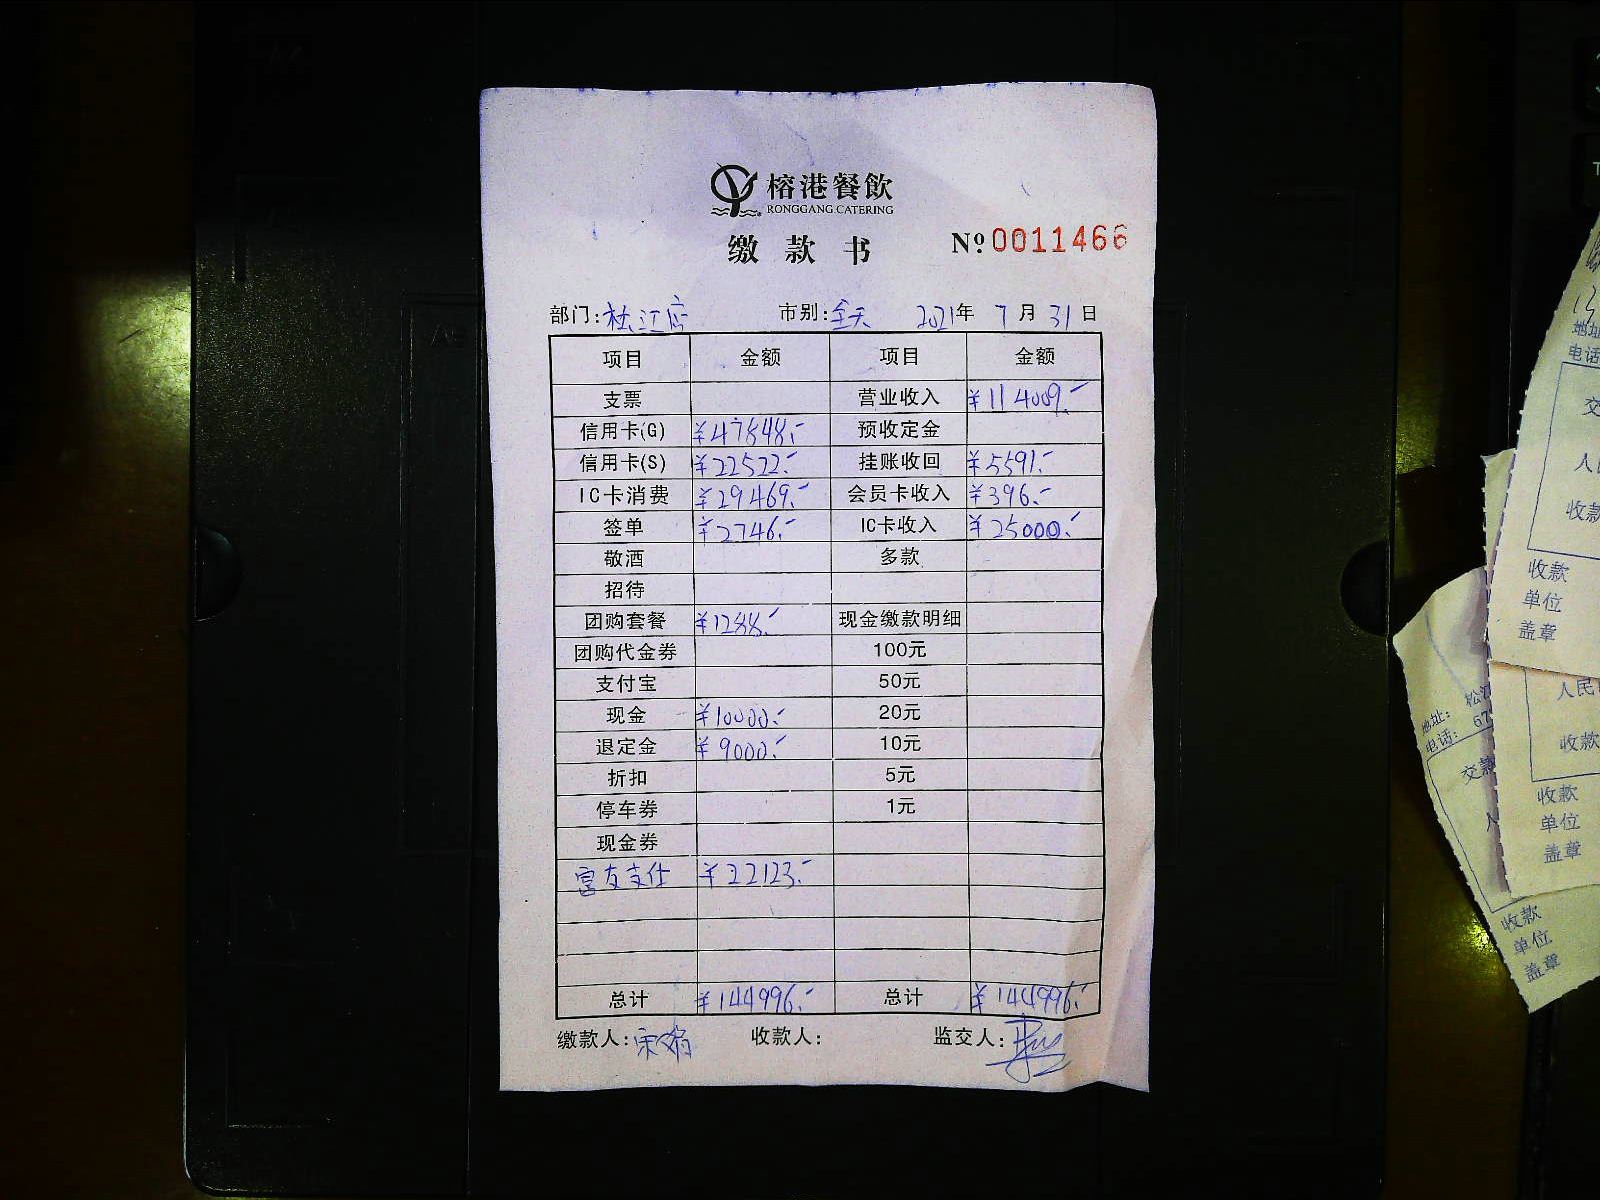 榕港餐飲
RONGGANG CATERING
缴 款 书 Nº0011466
部门:松江店 市别:全天 2021年 7月31日
项目 金额 项目 金额
支票 营业收入 ¥114009.-
信用卡(G) ¥47848.- 预收定金
信用卡(S) ¥22522.- 挂账收回 ¥5591.-
IC卡消费 ¥29469.- 会员卡收入 ¥396.-
签单 ¥2746.- IC卡收入 ¥25000.-
敬酒 多款
招待
团购套餐 ¥1288.- 现金缴款明细
团购代金券 100元
支付宝 50元
现金 ¥10000.- 20元
退定金 ¥9000.- 10元
折扣 5元
停车券 1元
现金券
富友支付 ¥22123.-
总计 ¥144996.- 总计 ¥144996.-
缴款人: 收款人: 监交人:
地址
电话
交
人民
收款
收款
单位
盖章
人民
收款
收款
单位
盖章
地址: 松江
电话: 67
交款
人
收款
单位
盖章